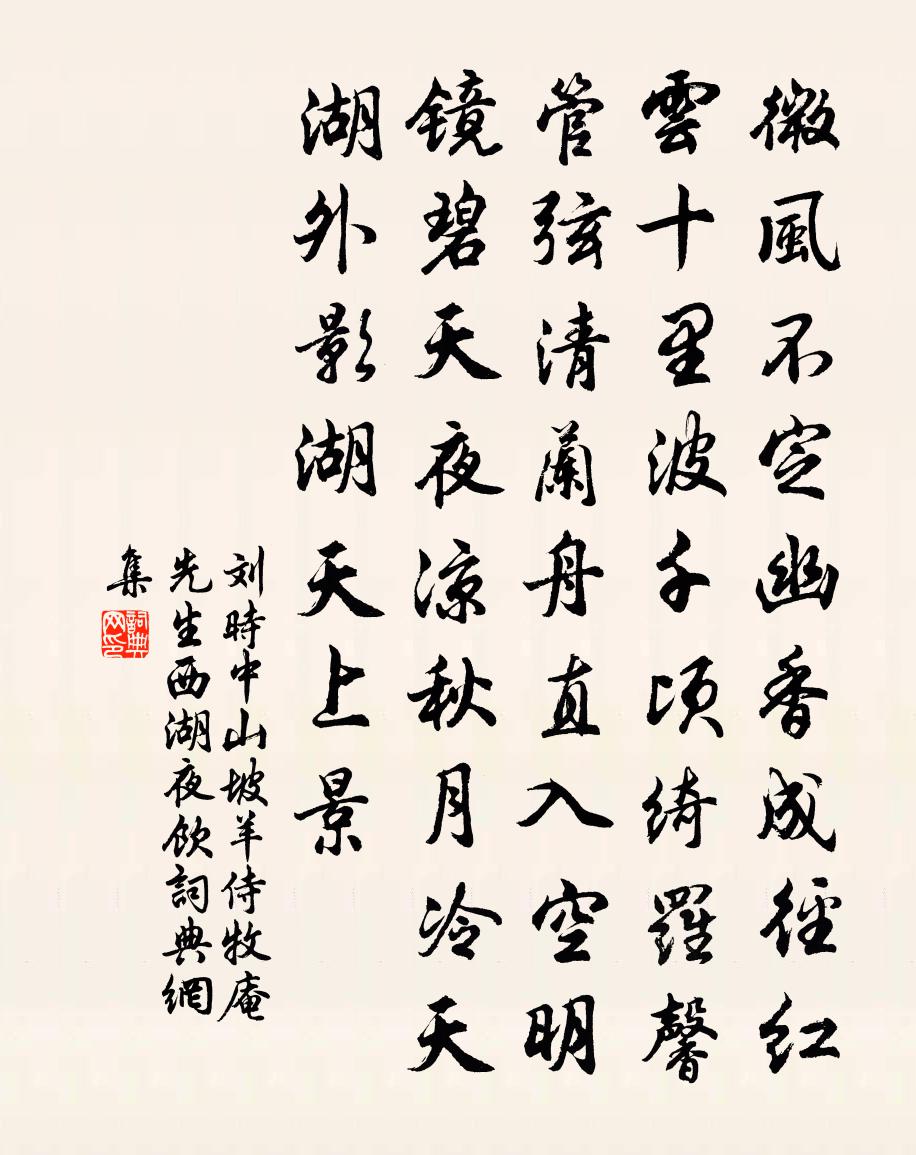 微風不定幽香成徑红
雲十里波千顷綺羅馨
管弦清蘭舟直入空明
镜碧天夜凉秋月冷天
湖外影湖天上景
刘時中山坡羊侍牧庵
先生西湖夜飲詞典網
集
詞典网印